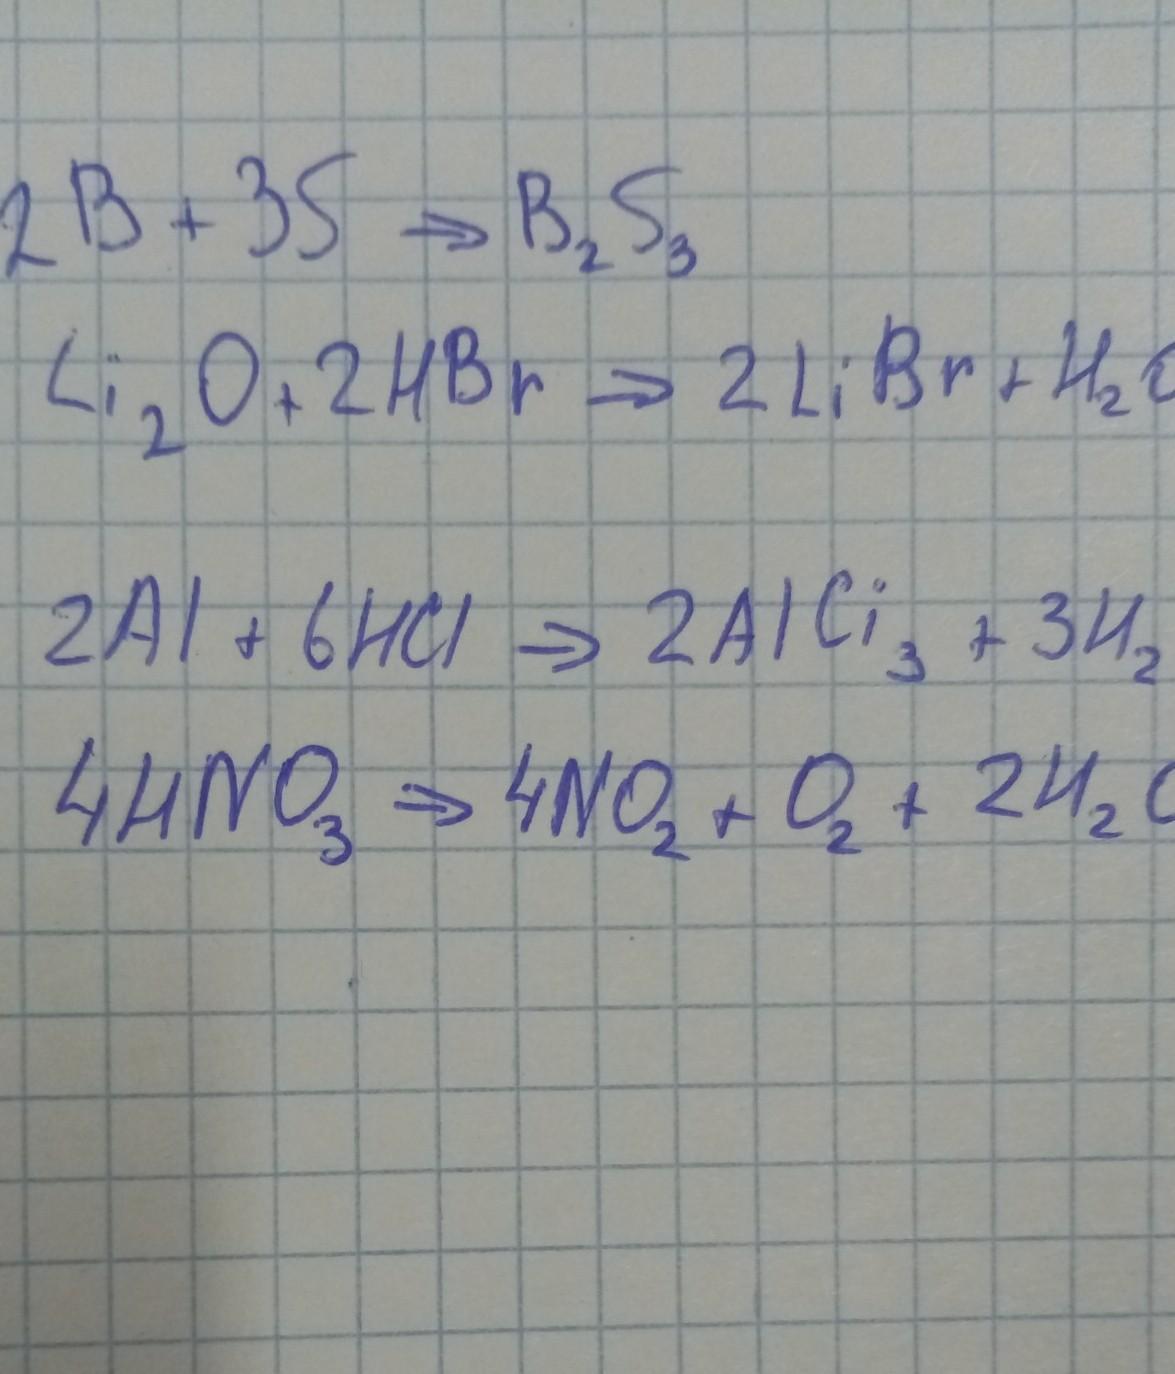 2B + 3S ⇒ B₂S₃
Li₂O + 2HBr ⇒ 2LiBr + H₂O
2Al + 6HCl ⇒ 2AlCi₃ + 3H₂
4HNO₃ ⇒ 4NO₂ + O₂ + 2H₂O